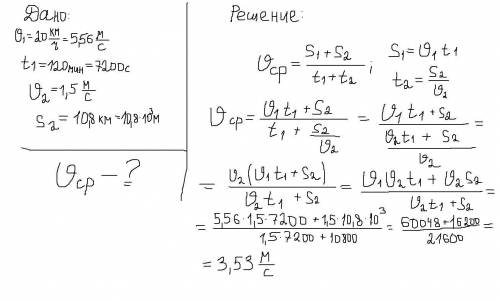 Дано:
υ₁=20 км/ч=5,56 м/с
t₁=120мин=7200с
υ₂=1,5 м/с
s₂=10,8 км=10,8·10³м
υср-?
Решение:
υср = (s₁+s₂)/(t₁+t₂); s₁=υ₁t₁
t₂=s₂/υ₂
υср = (υ₁t₁+s₂)/(t₁+s₂/υ₂) = (υ₁t₁+s₂)/((υ₂t₁+s₂)/υ₂) =
= υ₂(υ₁t₁+s₂)/(υ₂t₁+s₂) = (υ₁υ₂t₁+υ₂s₂)/(υ₂t₁+s₂) =
= (5,56·1,5·7200+1,5·10,8·10³)/(1,5·7200+10800) = (60048+16200)/21600 =
= 3,53 м/с